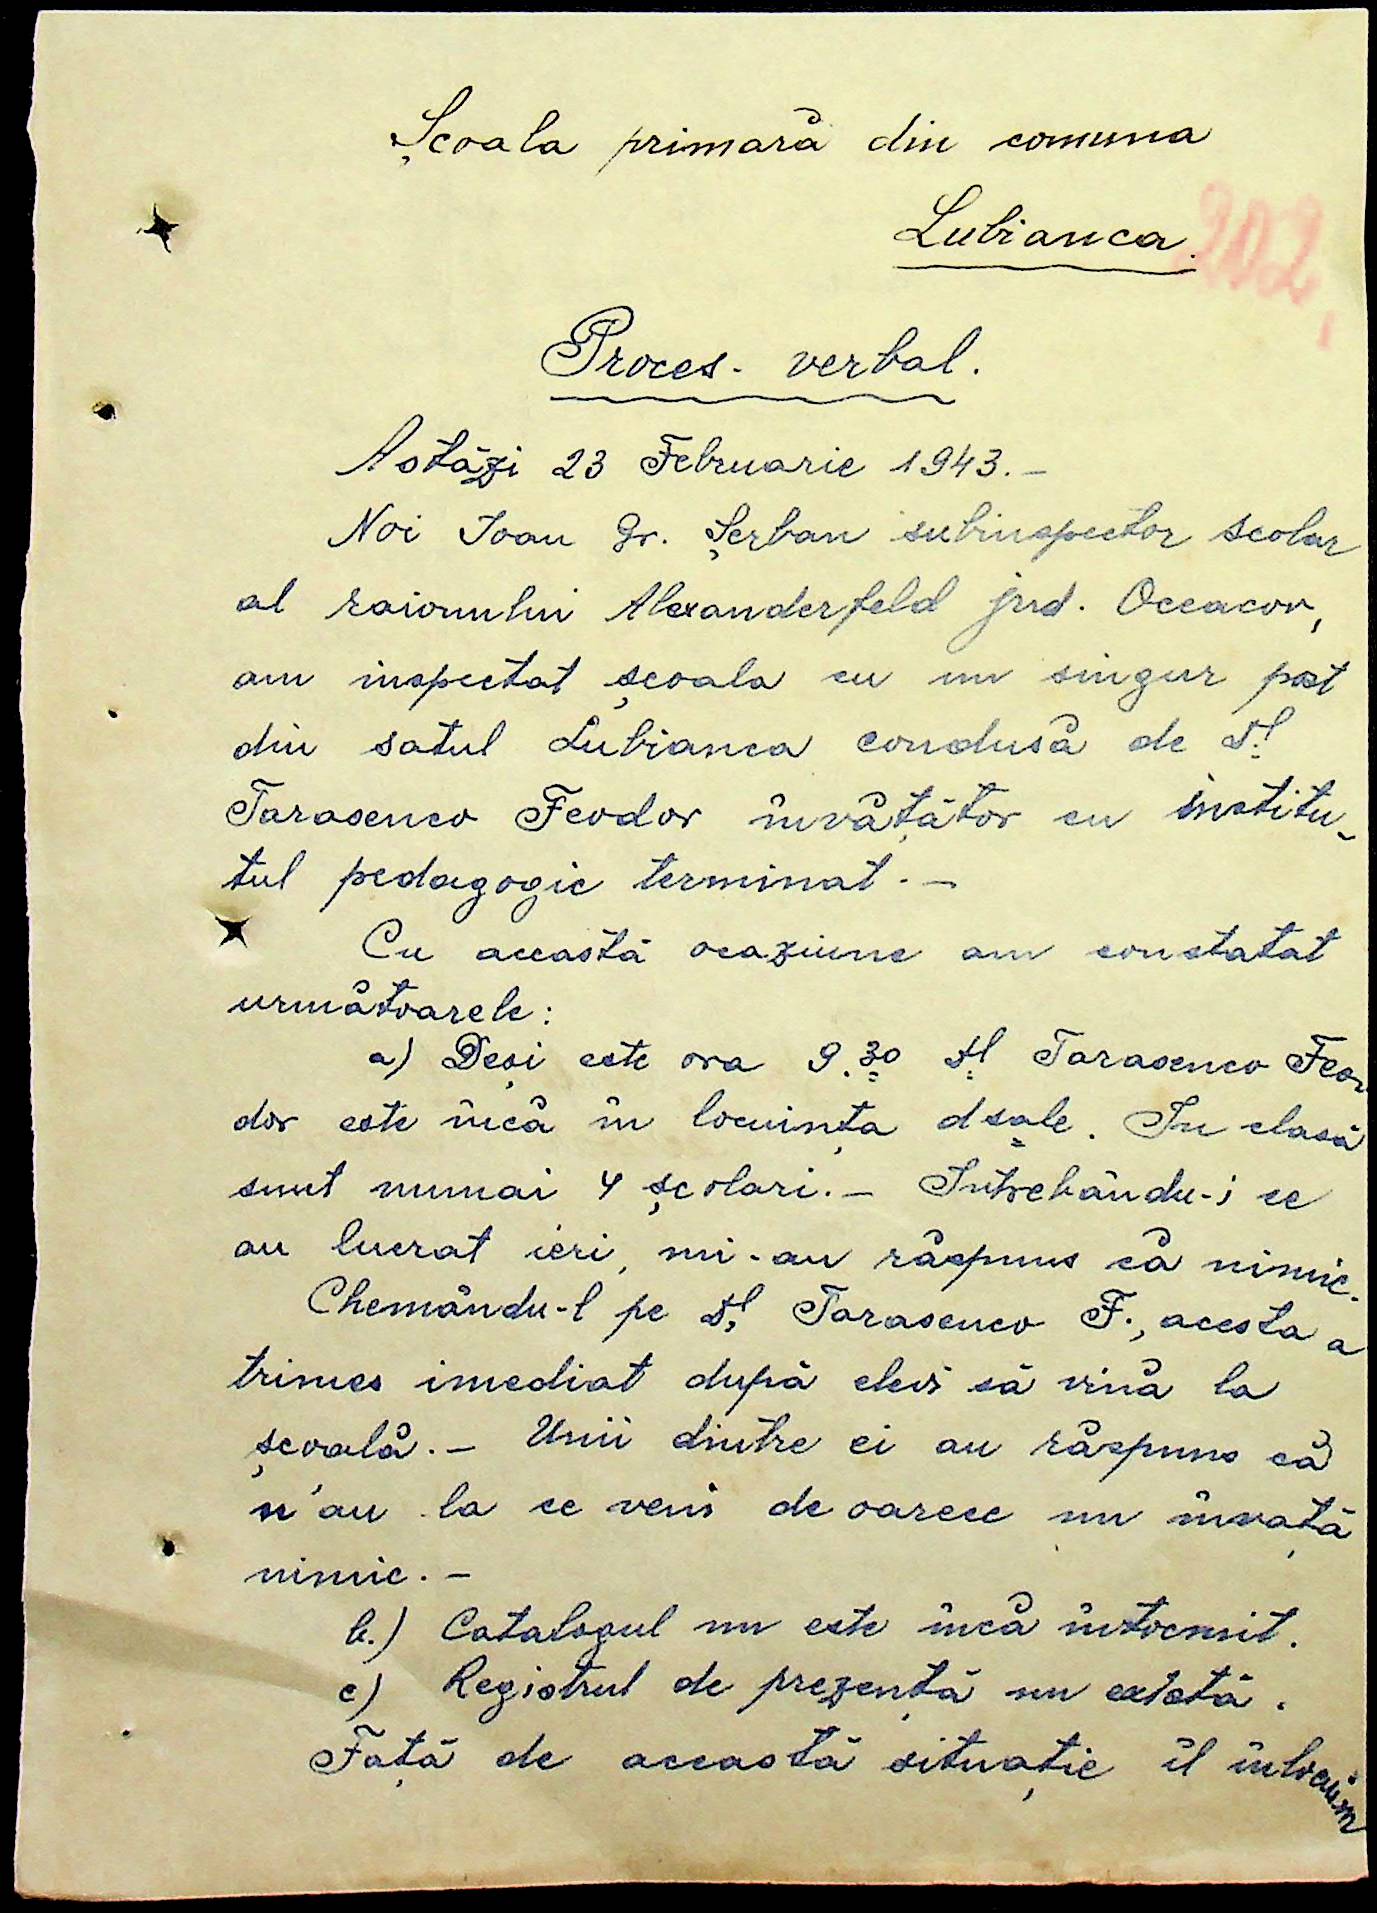 Școala primară din comuna
Lubianca.
202
Proces-verbal.
Astăzi 23 Februarie 1943.-
Noi Ioan Gr. Șerban subinspector scolar
al raionului Alexanderfeld jud. Oceacov,
am inspectat școala cu un singur post
din satul Lubianca condusă de Dl
Tarasenco Feodor învățător cu institu-
tul pedagogic terminat.-
Cu această ocaziune am constatat
următoarele:
a) Deși este ora 9.30 Dl Tarasenco Feo-
dor este încă în locuința dsale. In clasă
sunt numai 4 școlari.- Intrebându-i ce
au lucrat ieri, mi-au răspuns că nimic.
Chemându-l pe Dl Tarasenco F., acesta a
trimes imediat după elevi să vină la
școală.- Unii dintre ei au răspuns că
n'au la ce veni de oarece nu învață
nimic.-
b.) Catalogul nu este încă întocmit.
c) Registrul de prezență nu există.
Față de această situație îl înlocuim